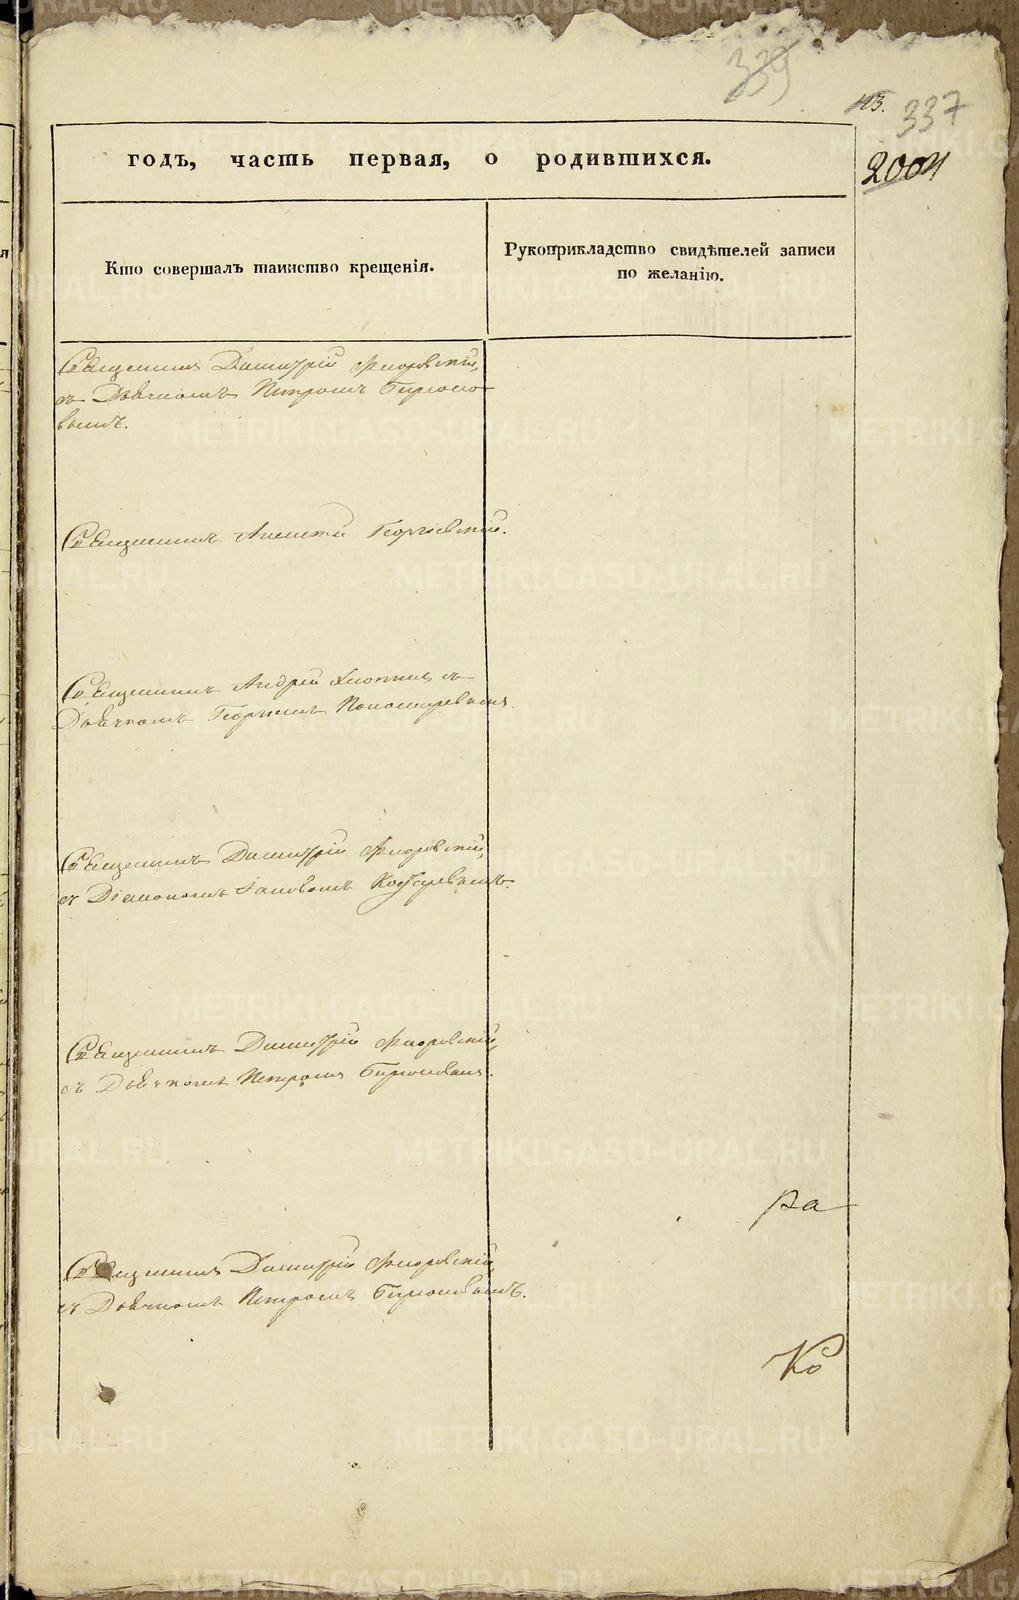 339
123.
337
2004
годъ, часть первая, о родившихся.
Кто совершалъ таинство крещенія.
Рукоприкладство свидѣтелей записи
по желанію.
Священникъ Димитрій Флоровскій,
съ Дьячкомъ Петромъ Бирюко-
вымъ.
Священникъ Алексѣй Георгіевскій.
Священникъ Андрей съ
Дьячкомъ Георгіемъ Пономаревымъ.
Священникъ Димитрій Флоровскій,
съ Діакономъ Іаковомъ
Священникъ Димитрій Флоровскій,
съ Дьячкомъ Петромъ Бирюковымъ.
ра
Священникъ Димитрій Флоровскій,
съ Дьячкомъ Петромъ Бирюковымъ.
Ко
METRIKI.GASO-URAL.RU